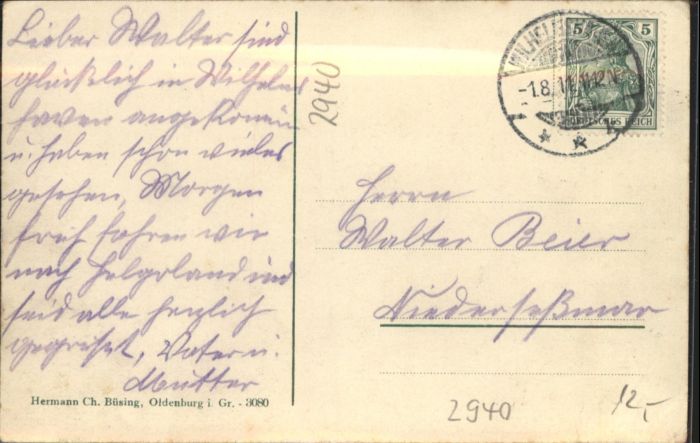 Lieber Walter sind
glücklich in Wilhelms
haven angekommen
u. haben schon vieles
gesehen, Morgen
früh fahren wir
nach Helgoland und
seid alle herzlich
gegrüßt, Vater u.
Mutter
Hermann Ch. Büsing, Oldenburg i. Gr. - 3080
2940
-1.8.11. 11-12 N.
5 5
DEUTSCHES REICH
Herrn
Walter Beier
Niederseßmar
2940
12,-